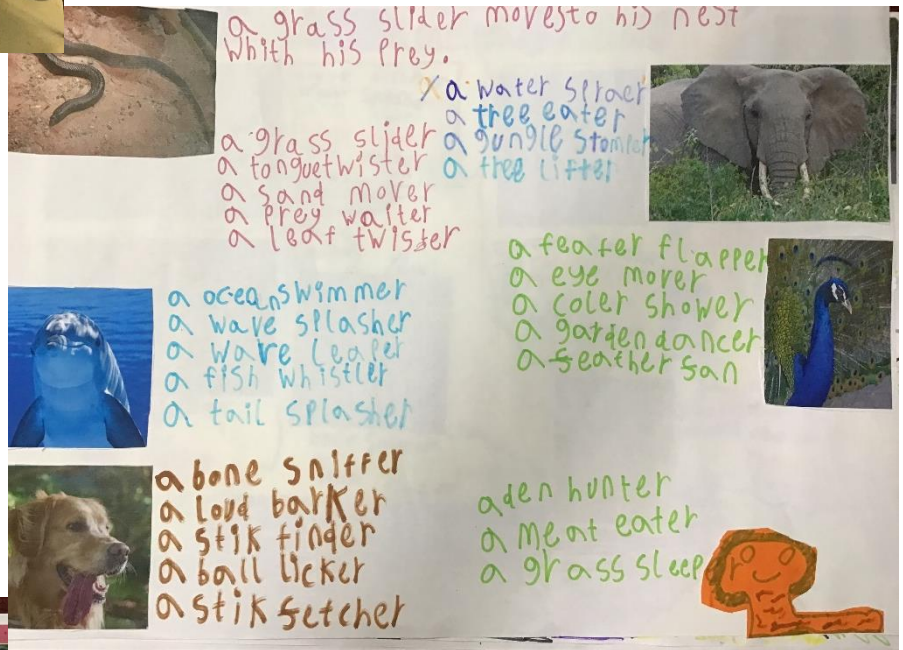 a grass slider movesto his nest
whith his prey.
a water spraer
a tree eater
a gungle stomper
a tree lifter
a grass slider
a tonguetwister
a sand mover
a prey waiter
a leaf twister
a feater flapper
a eye mover
a coler shower
a garden dancer
a feather fan
a oceanswimmer
a wave splasher
a wave leaper
a fish whistler
a tail splasher
a bone sniffer
a loud barker
a stik finder
a ball licker
a stik fetcher
a den hunter
a meat eater
a grass sleeper